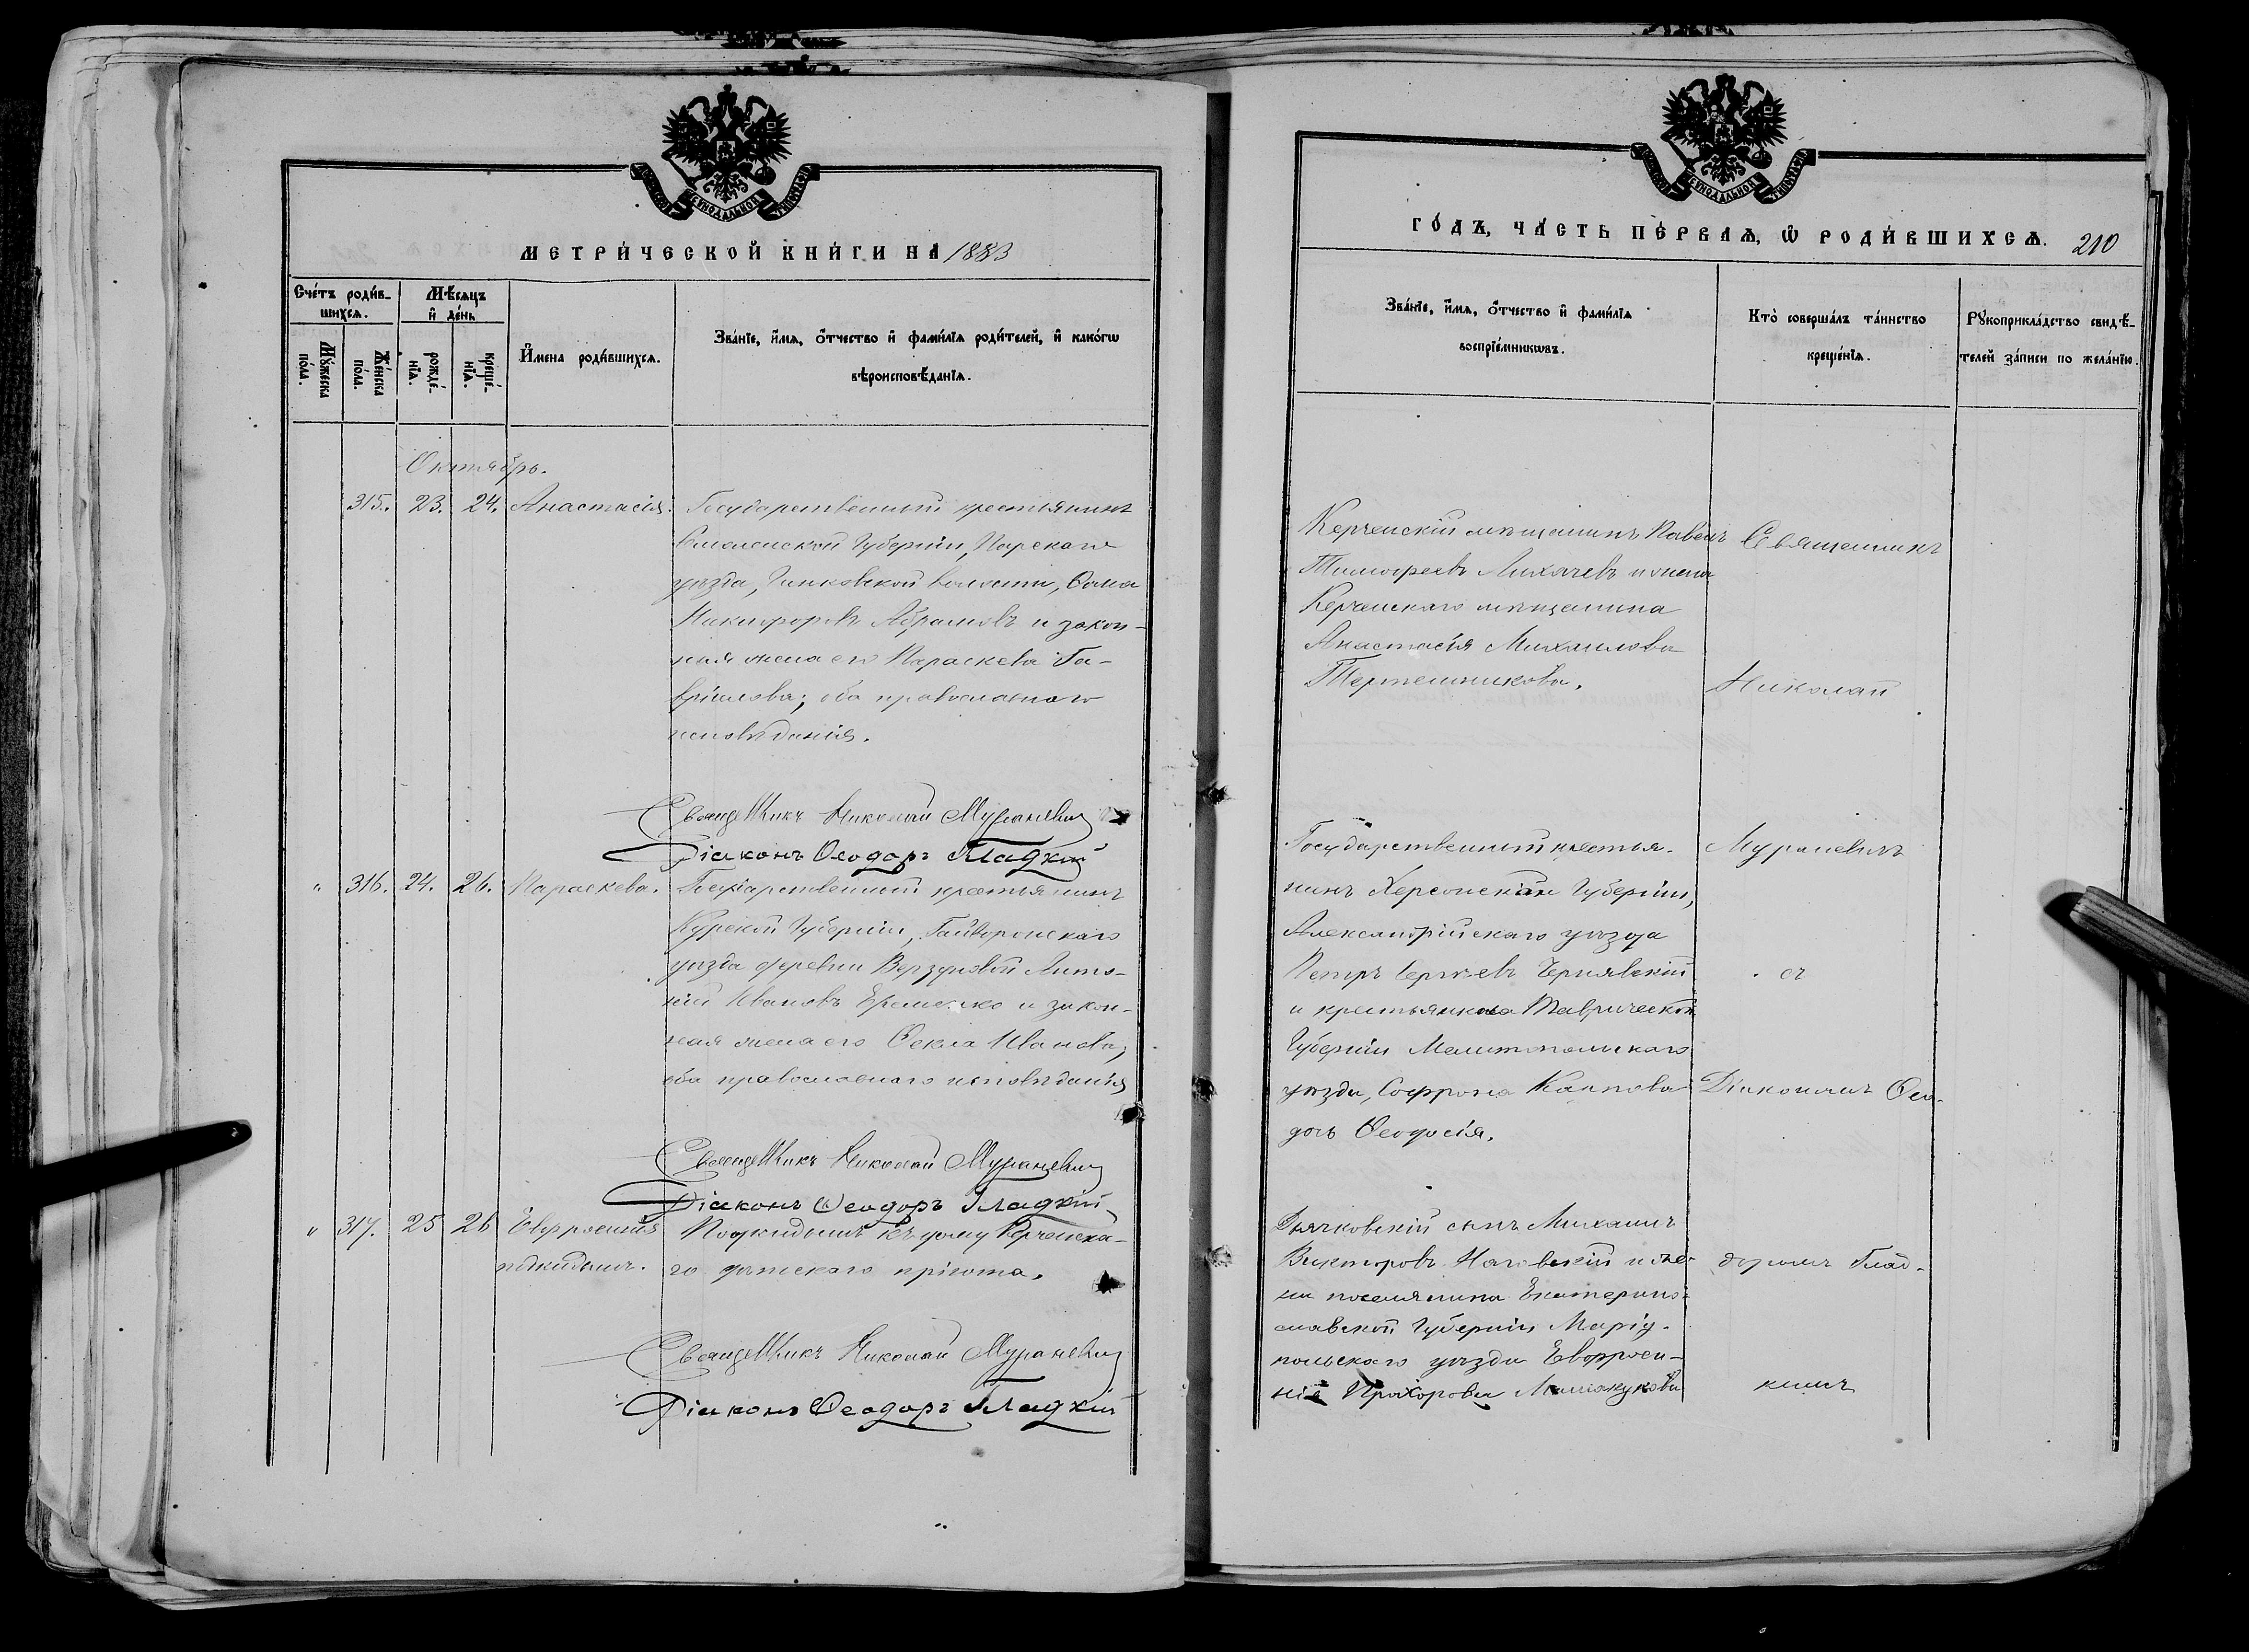 МЕТРИ́ЧЕСКОЙ КНИ́ГИ НА 1883
Сче́тъ роди́в-
шихсѧ.
Мѣ́сѧцъ
и҆ де́нь
Мꙋ́жеска
по́ла.
Же́нска
по́ла.
рожде́-
нїѧ.
креще́-
нїѧ.
И҆мена роди́вшихсѧ.
Зва́нїе, и҆́мѧ, ѻ҆́тчество и҆ фами́лїѧ роди́телей, и҆ како́гѡ
вѣроисповѣ́данїѧ.
Октябрь.
315. 23. 24. Анастасія. Государственный крестьянинъ
Смоленской Губерніи, Парскаго
уѣзда, волости, Ѳома
Никифоровъ Абрамовъ и закон-
ная жена его Параскева Га-
вріилова; оба православнаго
исповѣданія.
Священникъ Николай Мураневичъ
Діаконъ Ѳеодоръ Гладкій
" 316. 24. 26. Параскева. Государственный крестьянинъ
Курской Губерніи, Гайворонскаго
уѣзда деревни Анто-
ній Ивановъ Еременко и закон-
ная жена его Ѳекла Иванова;
оба православнаго исповѣданія
Священникъ Николай Мураневичъ
Діаконъ Ѳеодоръ Гладкій
" 317. 25 26 Евфросинія Подкидышъ къ дому Керченска-
подкидышъ. го дѣтскаго пріюта.
Священникъ Николай Мураневичъ
Діаконъ Ѳеодоръ Гладкій
ГО́ДЪ, ЧА́СТЬ ПЕ́РВАѦ, Ѡ҆ РОДИ́ВШИХСѦ. 210
Зва́нїе, и҆́мѧ, ѻ҆́тчество и҆ фами́лїѧ
воспрїе́мникѡвъ.
Кто̀ соверша́лъ та́инство
креще́нїѧ.
Рꙋкоприкла́дство свидѣ́-
телей за́писи по жела́нїю.
Керченскій мѣщанинъ Павелъ
Тимофеевъ Лихачевъ и жена
Керченскаго мѣщанина
Анастасія Михаилова
Тертешникова.
Священникъ
Николай
Государственный крестья-
нинъ Херсонской Губерніи,
Александрійскаго уѣзда
Петръ Сергѣевъ Чернявскій
и крестьянка Таврической
Губерніи Мелитопольскаго
уѣзда, Софрона Карпова
дочь Ѳеодосія.
Мураневичъ
съ
Діакономъ Ѳео-
Дьячковскій сынъ Михаилъ
Викторовъ Наговскій и же-
на поселянина Екатерино-
славской Губерніи Маріу-
польскаго уѣзда Евфроси-
нія Прохорова
доромъ Глад-
кимъ